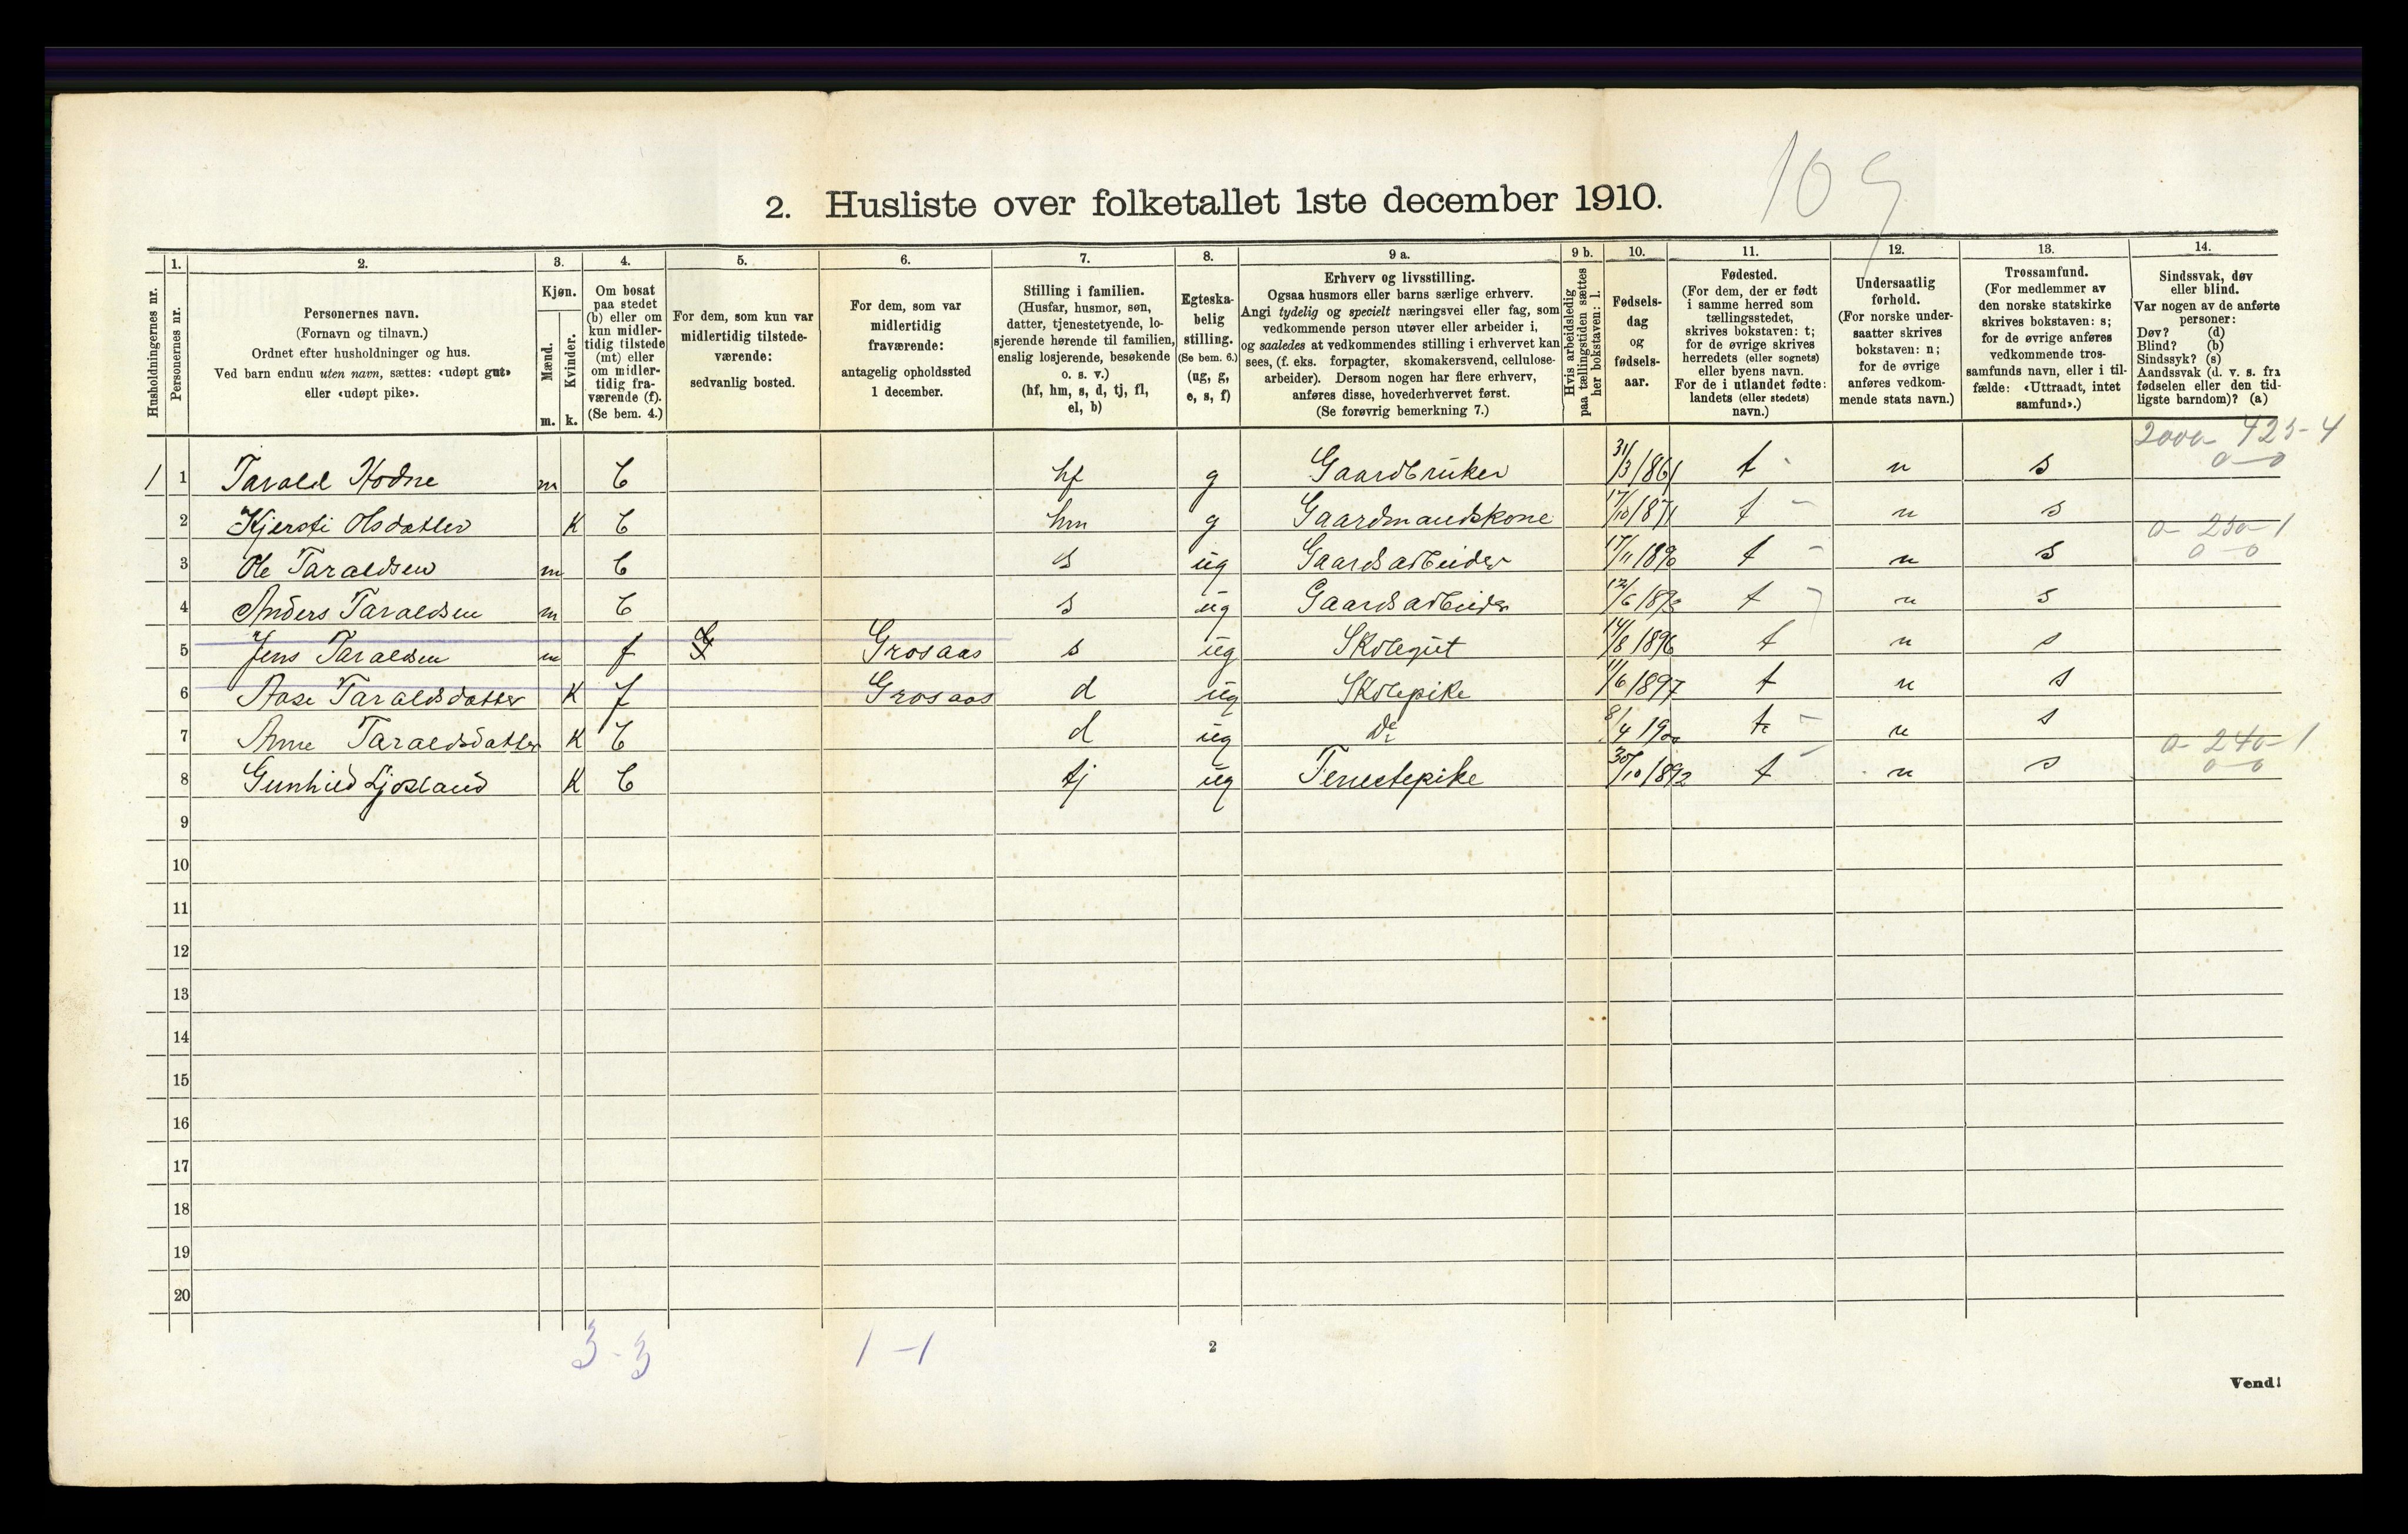 109
2. Husliste over folketallet 1ste december 1910.
Husholdningernes nr.
1. Personernes nr.
2. Personernes navn. (Fornavn og tilnavn.) Ordnet efter husholdninger og hus. Ved barn endnu uten navn, sættes: «udøpt gut» eller «udøpt pike».
3. Kjøn. Mænd. m. Kvinder. k.
4. Om bosat paa stedet (b) eller om kun midlertidig tilstede (mt) eller om midlertidig fraværende (f). (Se bem. 4.)
5. For dem, som kun var midlertidig tilstedeværende: sedvanlig bosted.
6. For dem, som var midlertidig fraværende: antagelig opholdssted 1 december.
7. Stilling i familien. (Husfar, husmor, søn, datter, tjenestetyende, losjerende hørende til familien, enslig losjerende, besøkende o. s. v.) (hf, hm, s, d, tj, fl, el, b)
8. Egteskabelig stilling. (Se bem. 6.) (ug, g, e, s, f)
9 a. Erhverv og livsstilling. Ogsaa husmors eller barns særlige erhverv. Angi tydelig og specielt næringsvei eller fag, som vedkommende person utøver eller arbeider i, og saaledes at vedkommendes stilling i erhvervet kan sees, (f. eks. forpagter, skomakersvend, cellulosearbeider). Dersom nogen har flere erhverv, anføres disse, hovederhvervet først. (Se forøvrig bemerkning 7.)
9 b. Hvis arbeidsledig paa tællingstiden sættes her bokstaven: l.
10. Fødselsdag og fødselsaar.
11. Fødested. (For dem, der er født i samme herred som tællingsstedet, skrives bokstaven: t; for de øvrige skrives herredets (eller sognets) eller byens navn. For de i utlandet fødte: landets (eller stedets) navn.)
12. Undersaatlig forhold. (For norske undersaatter skrives bokstaven: n; for de øvrige anføres vedkommende stats navn.)
13. Trossamfund. (For medlemmer av den norske statskirke skrives bokstaven: s; for de øvrige anføres vedkommende trossamfunds navn, eller i tilfælde: «Uttraadt, intet samfund».)
14. Sindssvak, døv eller blind. Var nogen av de anførte personer: Døv? (d) Blind? (b) Sindssyk? (s) Aandssvak (d. v. s. fra fødselen eller den tidligste barndom)? (a)
2000- 425-4
0-0
1 1 Tarald Hodne m b hf g Gaardbruker 31/3 1861 t n s
2 Kjersti Olsdatter K b hm g Gaardmandskone 17/10 1871 t n s
0- 250-1
0-0
3 Ole Taraldsen m b s ug Gaardsarbeider 17/11 1890 t n s
4 Anders Taraldsen m b s ug Gaardsarbeider 12/6 1893 t n s
5 Jens Taraldsen m f Grosaas s ug Skolegut 14/8 1896 t n s
6 Aase Taraldsdatter K f Grosaas d ug Skolepike 11/6 1897 t n s
7 Anne Taraldsdatter K b d ug Do 8/4 1900 t n s
0- 240-1
0-0
8 Gunhild Ljosland K b tj ug Tenestepike 30/10 1892 t n s
9
10
11
12
13
14
15
16
17
18
19
20
3-3 1-1
2
Vend!